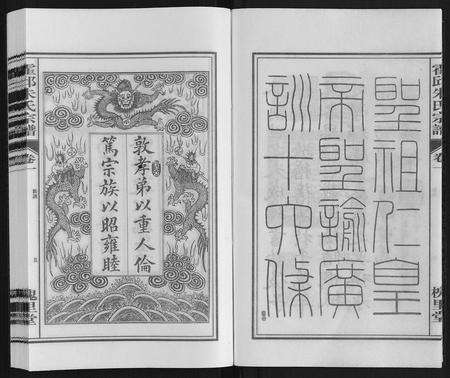 霍邱朱氏宗譜
卷一
槐里堂
聖祖仁皇
帝聖諭廣
訓十六條
敦孝弟以重人倫
篤宗族以昭雍睦
霍邱朱氏宗譜
卷一
槐里堂